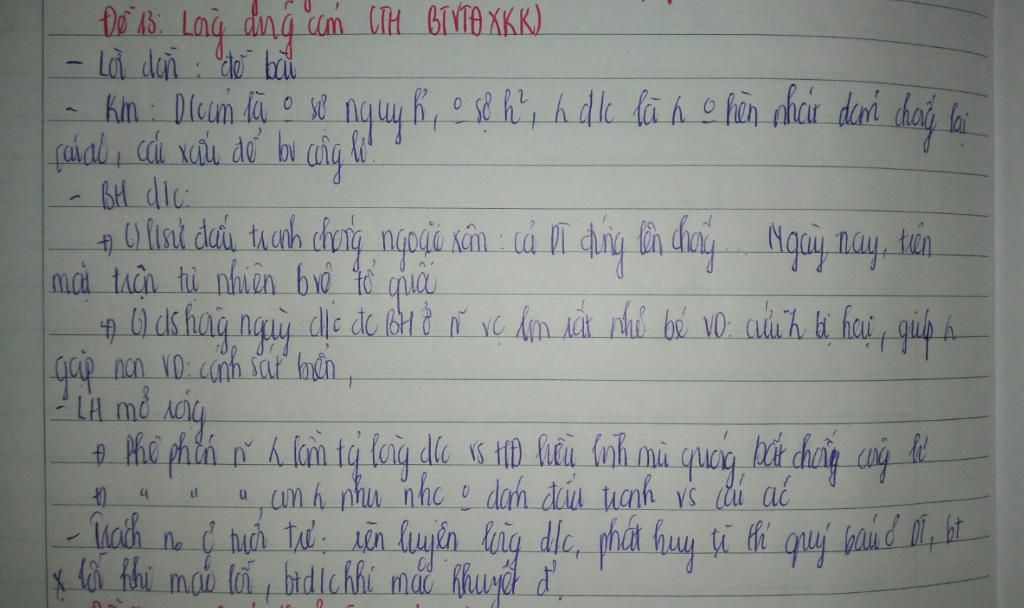 Đề 13: Lòng dũng cảm (TH BTVTĐXKK)
- Lời dẫn: đề bài
- Km: D/cảm là o sợ nguy h², o sợ k², h d/c là h o hèn nhát dám chống lại
cái ác, cái xấu để bv công lí.
- BH d/c:
+) () l/sử đấu tranh chống ngoại xâm: cả DT đứng lên chống Ngày nay, trên
mặt trận tự nhiên bvệ tổ quốc
+) () c/s hàng ngày d/c đc BH ở n~ vc làm rất nhỏ bé VD: cứu h bị hại, giúp h
gặp nạn VD: cảnh sát biển,
- LH mở rộng
+) Phê phán n~ h lầm tg lòng d/c vs HĐ liều lĩnh mù quáng, bất chống công lí
+) " " ", con h nhu nhc o dám đấu tranh vs cái ác
- Trách no ç tuổi trẻ: rèn luyện lòng d/c, phát huy tr th quý báu ở DT, bt
x lỗi khi mắc lỗi, bt d/c khi mắc khuyết đ.